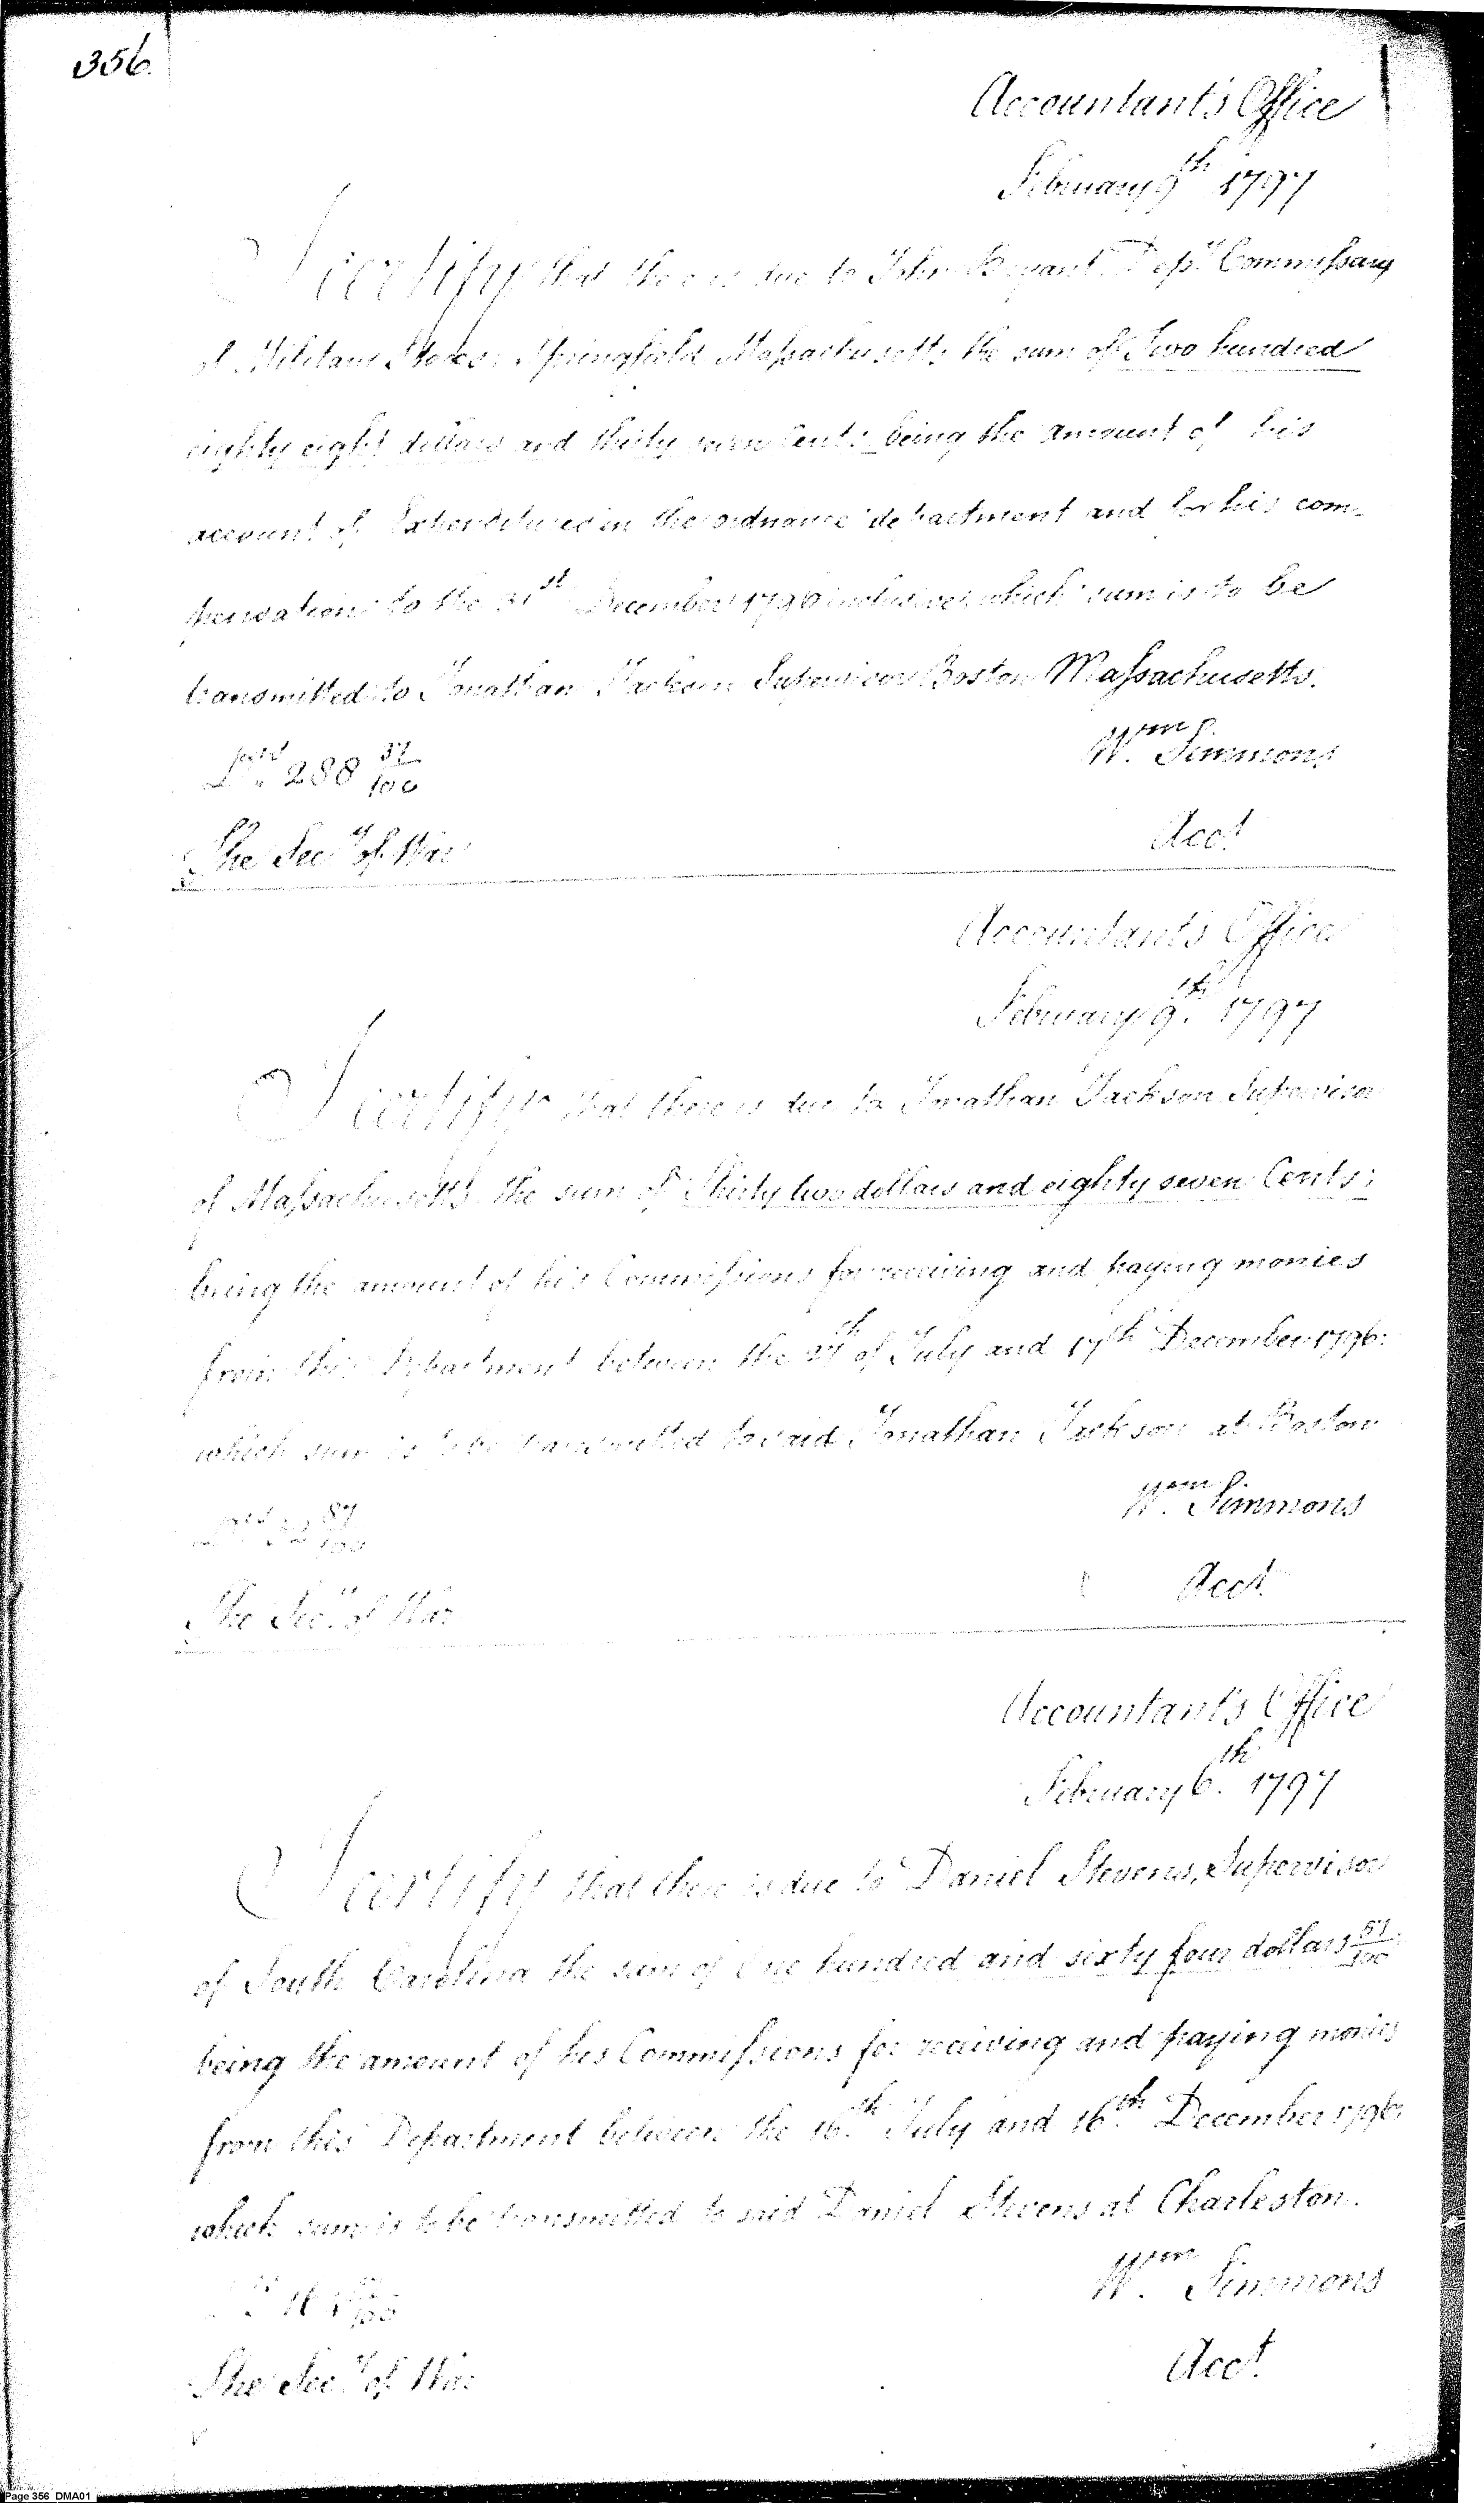 356.
Accountant's Office
February 9th 1797
I certify that there is due to John Bryant Depy Commissary
of Military Stores, Springfield Massachusetts the sum of Two hundred
eighty eight dollars and thirty seven Cents; being the amount of his
account of Expenditures in the ordnance department and for his com-
pensation to the 31st December 1796 inclusive, which sum is to be
transmitted to Jonathan Jackson Supervisor Boston Massachusetts.
Wm Simmons
288 37/100
Acct
The Secy of War
Accountant's Office
February 9th 1797
I certify that there is due to Jonathan Jackson Supervisor
of Massachusetts the sum of Thirty two dollars and eighty seven Cents;
being the amount of his Commissions for receiving and paying monies
from this Department between the 27th of July and 17th December 1796:
which sum is to be transmitted to said Jonathan Jackson at Boston
Wm Simmons
32 87/100
Acct
The Secy of War
Accountant's Office
February 6th 1797
I certify that there is due to Daniel Stevens, Supervisor
of South Carolina the sum of One hundred and sixty four dollars 57/100
being the amount of his Commissions for receiving and paying monies
from this Department between the 16th July and 16th December 1796:
which sum is to be transmitted to said Daniel Stevens at Charleston.
Wm Simmons
Acct
The Secy of War
Page 356 DMA01